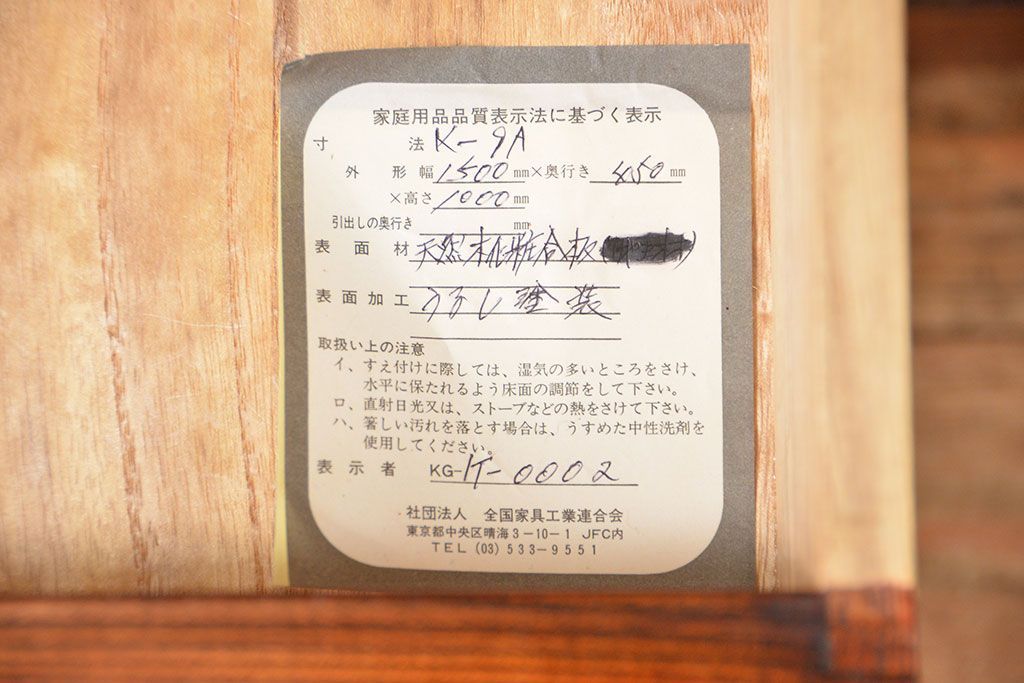 家庭用品品質表示法に基づく表示
寸法 K-9A
外形 幅 1500 mm×奥行き 450 mm
×高さ 1000 mm
引出しの奥行き mm
表面材 天然木化粧合板
表面加工 うるし塗装
取扱い上の注意
イ、すえ付けに際しては、湿気の多いところをさけ、
水平に保たれるよう床面の調節をして下さい。
ロ、直射日光又は、ストーブなどの熱をさけて下さい。
ハ、著しい汚れを落とす場合は、うすめた中性洗剤を
使用してください。
表示者 KG-IT-0002
社団法人 全国家具工業連合会
東京都中央区晴海3-10-1 JFC内
TEL (03) 533-9551